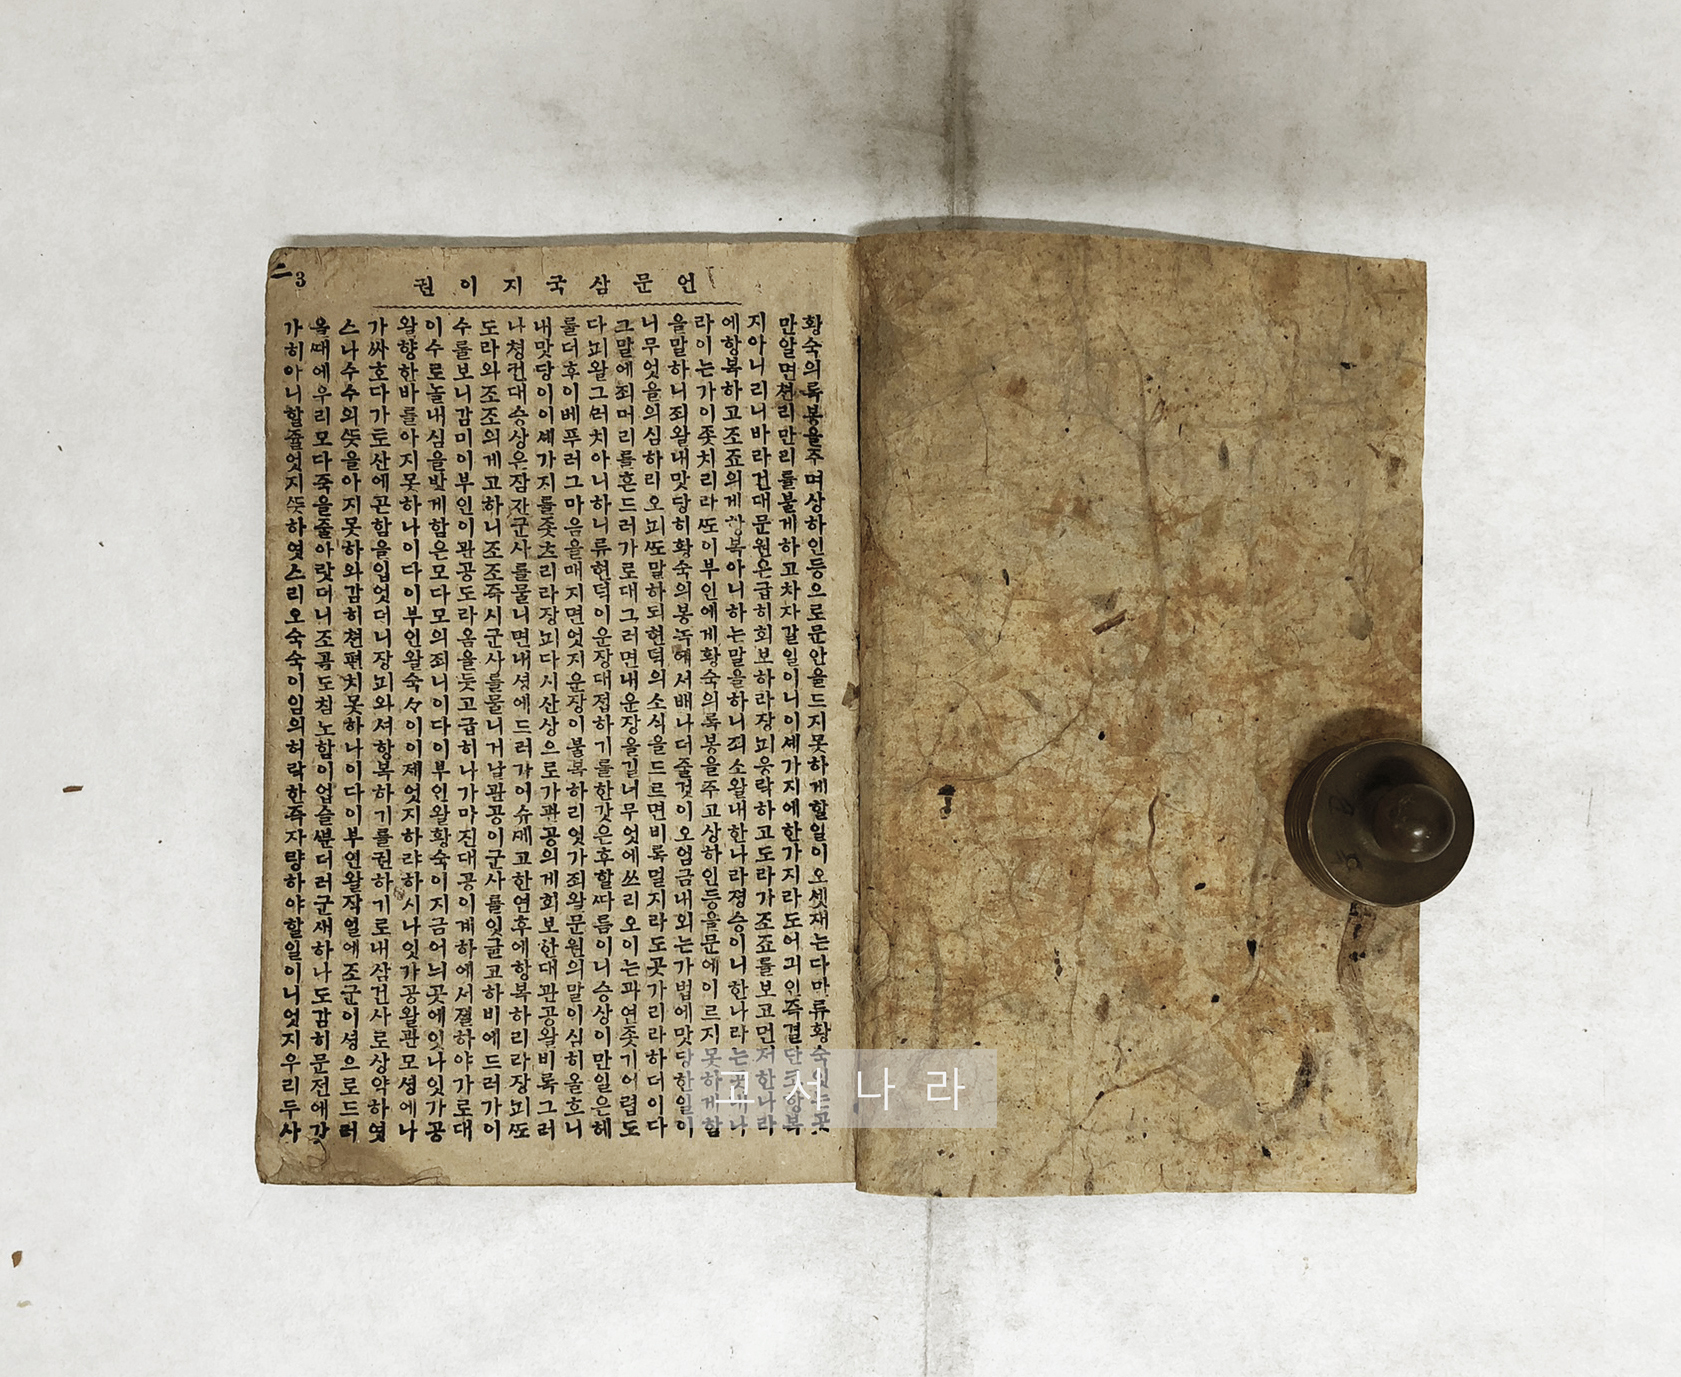 언문삼국지이권
3
황숙의록봉을주며상하인등으로문안을드지못하게할일이오셋재는다만류황숙잇는곳
만알면쳔리만리를불게하고차자갈일이니이셰가지에한가지라도어긔인즉결단코항복
지아니리니바라건대문원은급히회보하라장뇌응락하고도라가조죠를보고먼저한나라
에항복하고조죠의게항복아니하는말을하니죄소왈내한나라졍승이니한나라는곳내나
라이는가이좃치리라또이부인에게황숙의록봉을주고상하인등을문에이르지못하게함
을말하니죄왈내맛당히황숙의봉녹에서배나더줄것이오엄금내외는가법에맛당한일이
니무엇을의심하리오뇌또말하되현덕의소식을드르면비록멀지라도곳가리라하더이다
그말에죄머리를흔드러가로대그러면내운장을길너무엇에쓰리오이는과연좃기어렵도
다뇌왈그러치아니하니류현덕이운장대접하기를한갓은후할따름이니승상이만일은혜
를더후이베푸러그마음을매지면엇지운장이불복하리잇가죄왈문원의말이심히올흐니
내맛당이이셰가지를좃츠리라장뇌다시산상으로가관공의게회보한대관공왈비록그러
나쳥컨대승상은잠간군사를물니면내셩에드러가이슈께고한연후에항복하리라장뇌또
도라와조조의게고하니조조즉시군사를물니거날관공이군사를잇끌고하비에드러가이
수를보니감미이부인이관공도라옴을듯고급히나가마진대공이계하에서졀하야가로대
이수로놀내심을밧게함은모다모의죄니이다이부인왈황숙이지금어늬곳에잇나잇가공
왈향한바를아지못하나이다이부인왈숙々이이제엇지하랴하시나잇가공왈관모셩에나
가싸호다가토산에곤함을입엇더니장뇌와셔항복하기를권하기로내삼건사로상약하엿
스나수수의뜻을아지못하와감히쳔편치못하나이다이부인왈작일에조군이셩으로드러
올때에우리모다죽을줄아랏더니조곰도침노함이업슬뿐더러군새하나도감히문전에갓
가히아니할줄엇지뜻하엿스리오숙숙이임의허락한즉자량하야할일이니엇지우리두사
고서나라